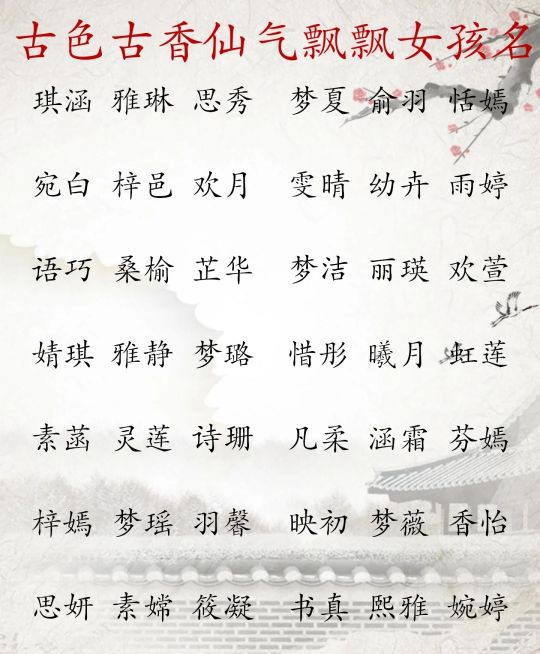 古色古香仙气飘飘女孩名
琪涵 雅琳 思秀 梦夏 俞羽 恬嫣
宛白 梓邑 欢月 雯晴 幼卉 雨婷
语巧 桑榆 芷华 梦洁 丽瑛 欢萱
婧琪 雅静 梦璐 惜彤 曦月 虹莲
素菡 灵莲 诗珊 凡柔 涵霜 芬嫣
梓嫣 梦瑶 羽馨 映初 梦薇 香怡
思妍 素嫦 筱凝 书真 熙雅 婉婷